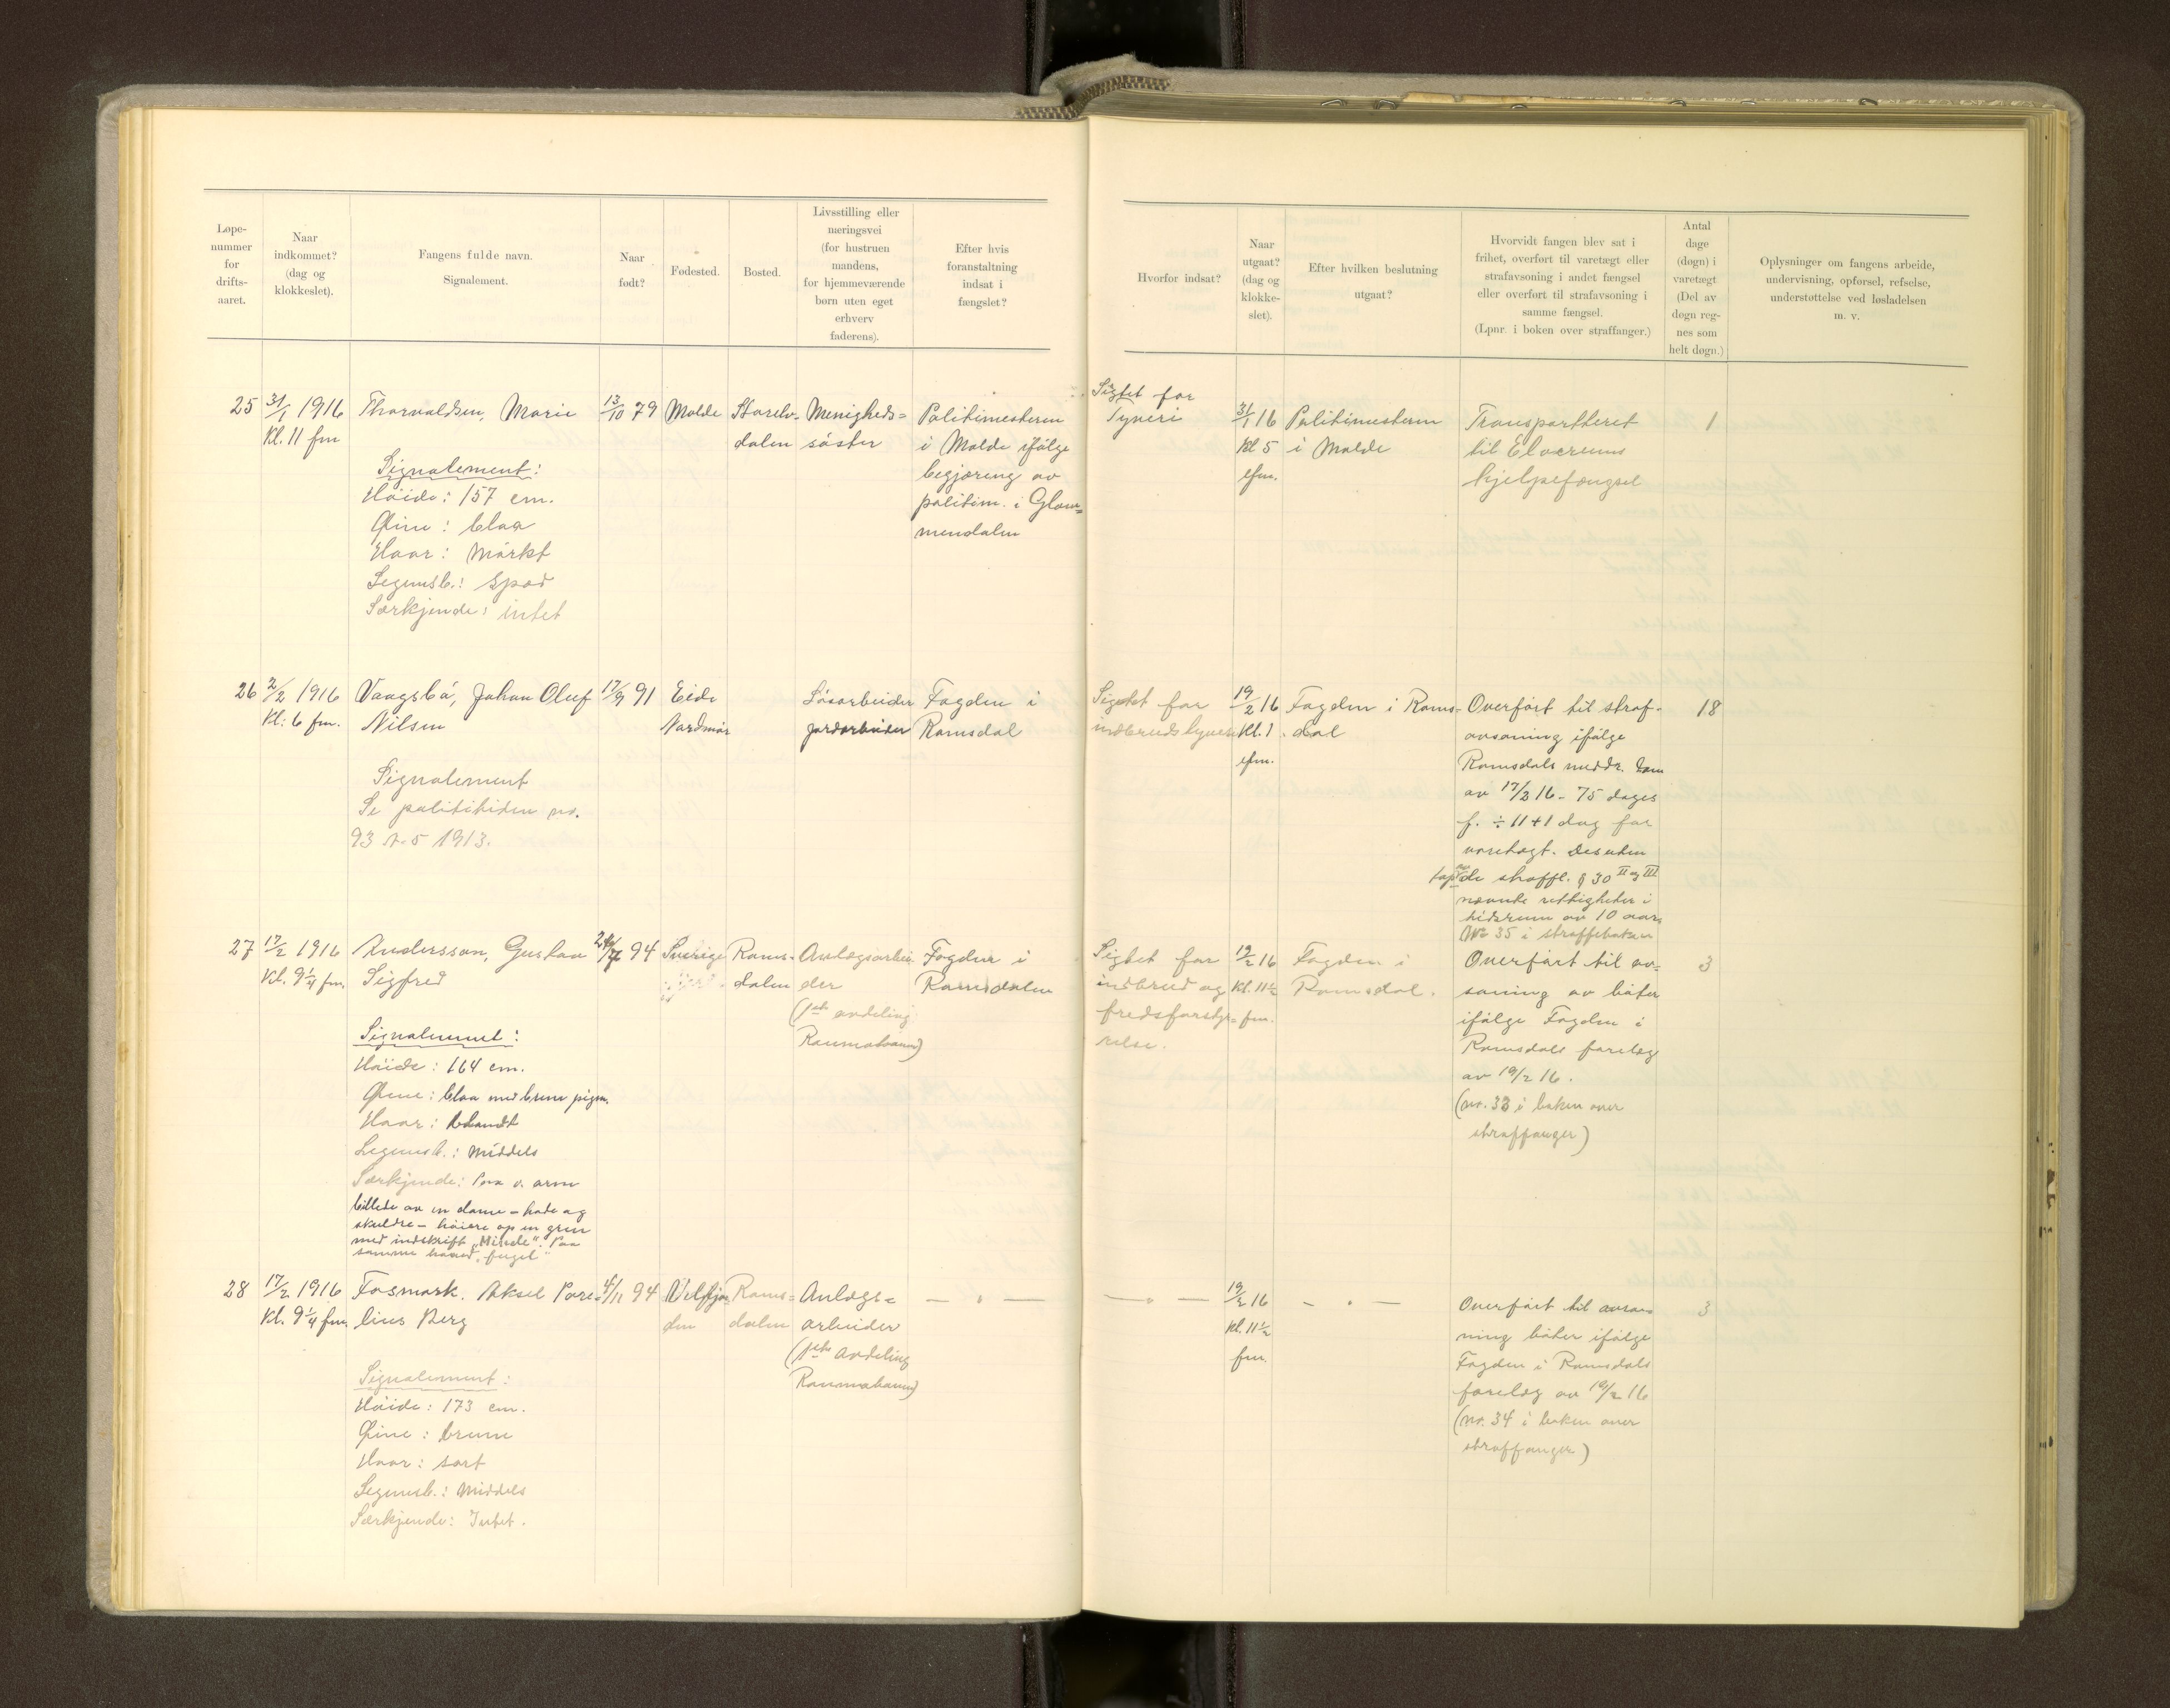 Løpe-
nummer
for
drifts-
aaret.
Naar
indkommet?
(dag og
klokkeslet).
Fangens fulde navn.
Signalement.
Naar
født?
Fødested.
Bosted.
Livsstilling eller
næringsvei
(for hustruen
mandens,
for hjemmeværende
børn uten eget
erhverv
faderens).
Efter hvis
foranstaltning
indsat i
fængslet?
Hvorfor indsat?
Naar
utgaat?
(dag og
klokke-
slet).
Efter hvilken beslutning
utgaat?
Hvorvidt fangen blev sat i
frihet, overført til varetægt eller
strafavsoning i andet fængsel
eller overført til strafavsoning i
samme fængsel.
(Lpnr. i boken over straffanger.)
Antal
dage
(døgn) i
varetægt
(Del av
døgn reg-
nes som
helt døgn.)
Oplysninger om fangens arbeide,
undervisning, opførsel, refselse,
understøttelse ved løsladelsen
m. v.
25
31/1 1916
Kl. 11 fm
Thorvaldsen, Marie
Signalement:
Høide: 157 cm.
Øine: blaa
Haar: Mørkt
Legemsb.: Spæd
Særkjende: intet
13/10 79
Molde
dalen
Menigheds=
søster
Politimesteren
i Molde ifølge
begjæring av
politim. i Glom=
mendalen
Sigtet for
Tyveri
31/1 16
Kl 5
efm.
Politimesteren
i Molde
Transportheret
til Elverums
hjelpefængsel
1
26
2/2 1916
Kl: 6 fm.
Vaagsbø, Johan Oluf
Nilsen
Signalement
Se politiditen no.
93 1913.
17/9 91
Eide
Nordmør
Løsarbeider
jordarbeider
Fogden i
Romsdal
Sigtet for
indbrudstyveri
19/2 16
Kl. 1
efm.
Fogden i Roms=
dal
Overført til straf-
avsoning ifølge
Romsdals meddr. dom
av 17/2 16 - 75 dages
f. ÷ 11+1 dag for
varetægt. Desuden
tap av de i straffl. § 30 II og III
nævnte rettigheter i
tidsrum av 10 aar.
No 35 i straffeboken
18
27
17/2 1916
Kl. 9 1/4 fm.
Andersson, Gustav
Sigfred
Signalement:
Høide: 164 cm.
Øine: blaa med brune pigm.
Haar: blondt
Legemsb.: Middels
Særkjende: Paa v. arm
billede av en dame - hode og
skuldre - høiere op en gren
med indskrift „Minde". Paa
samme haand „fugel"
24/7 94
Sverige
Roms-
dalen
Anlægsarbei-
der
(1ste avdeling
Raumabanen)
Fogden i
Romsdalen
Sigtet for
indbrud og
fredsforstyr=
relse.
19/2 16
Kl. 11 1/2
fm.
Fogden i
Romsdal.
Overført til av=
soning av bøter
ifølge Fogden i
Romsdals forelæg
av 19/2 16.
(no. 33 i boken over
straffanger)
3
28
17/2 1916
Kl. 9 1/4 fm.
Fosmark. Aksel Pore=
lius Berg
Signalement:
Høide: 173 cm.
Øine: brune
Haar: sort
Legemsb.: Middels
Særkjende: Intet.
4/11 94
Velfjor
den
Roms=
dalen
Anlægs=
arbeider
(1ste avdeling
Raumabanen)
— „ —
— „ —
19/2 16
Kl. 11 1/2
fm.
— „ —
Overført til avso=
ning bøter ifølge
Fogden i Romsdals
forelæg av 19/2 16
(no. 34 i boken over
straffanger)
3